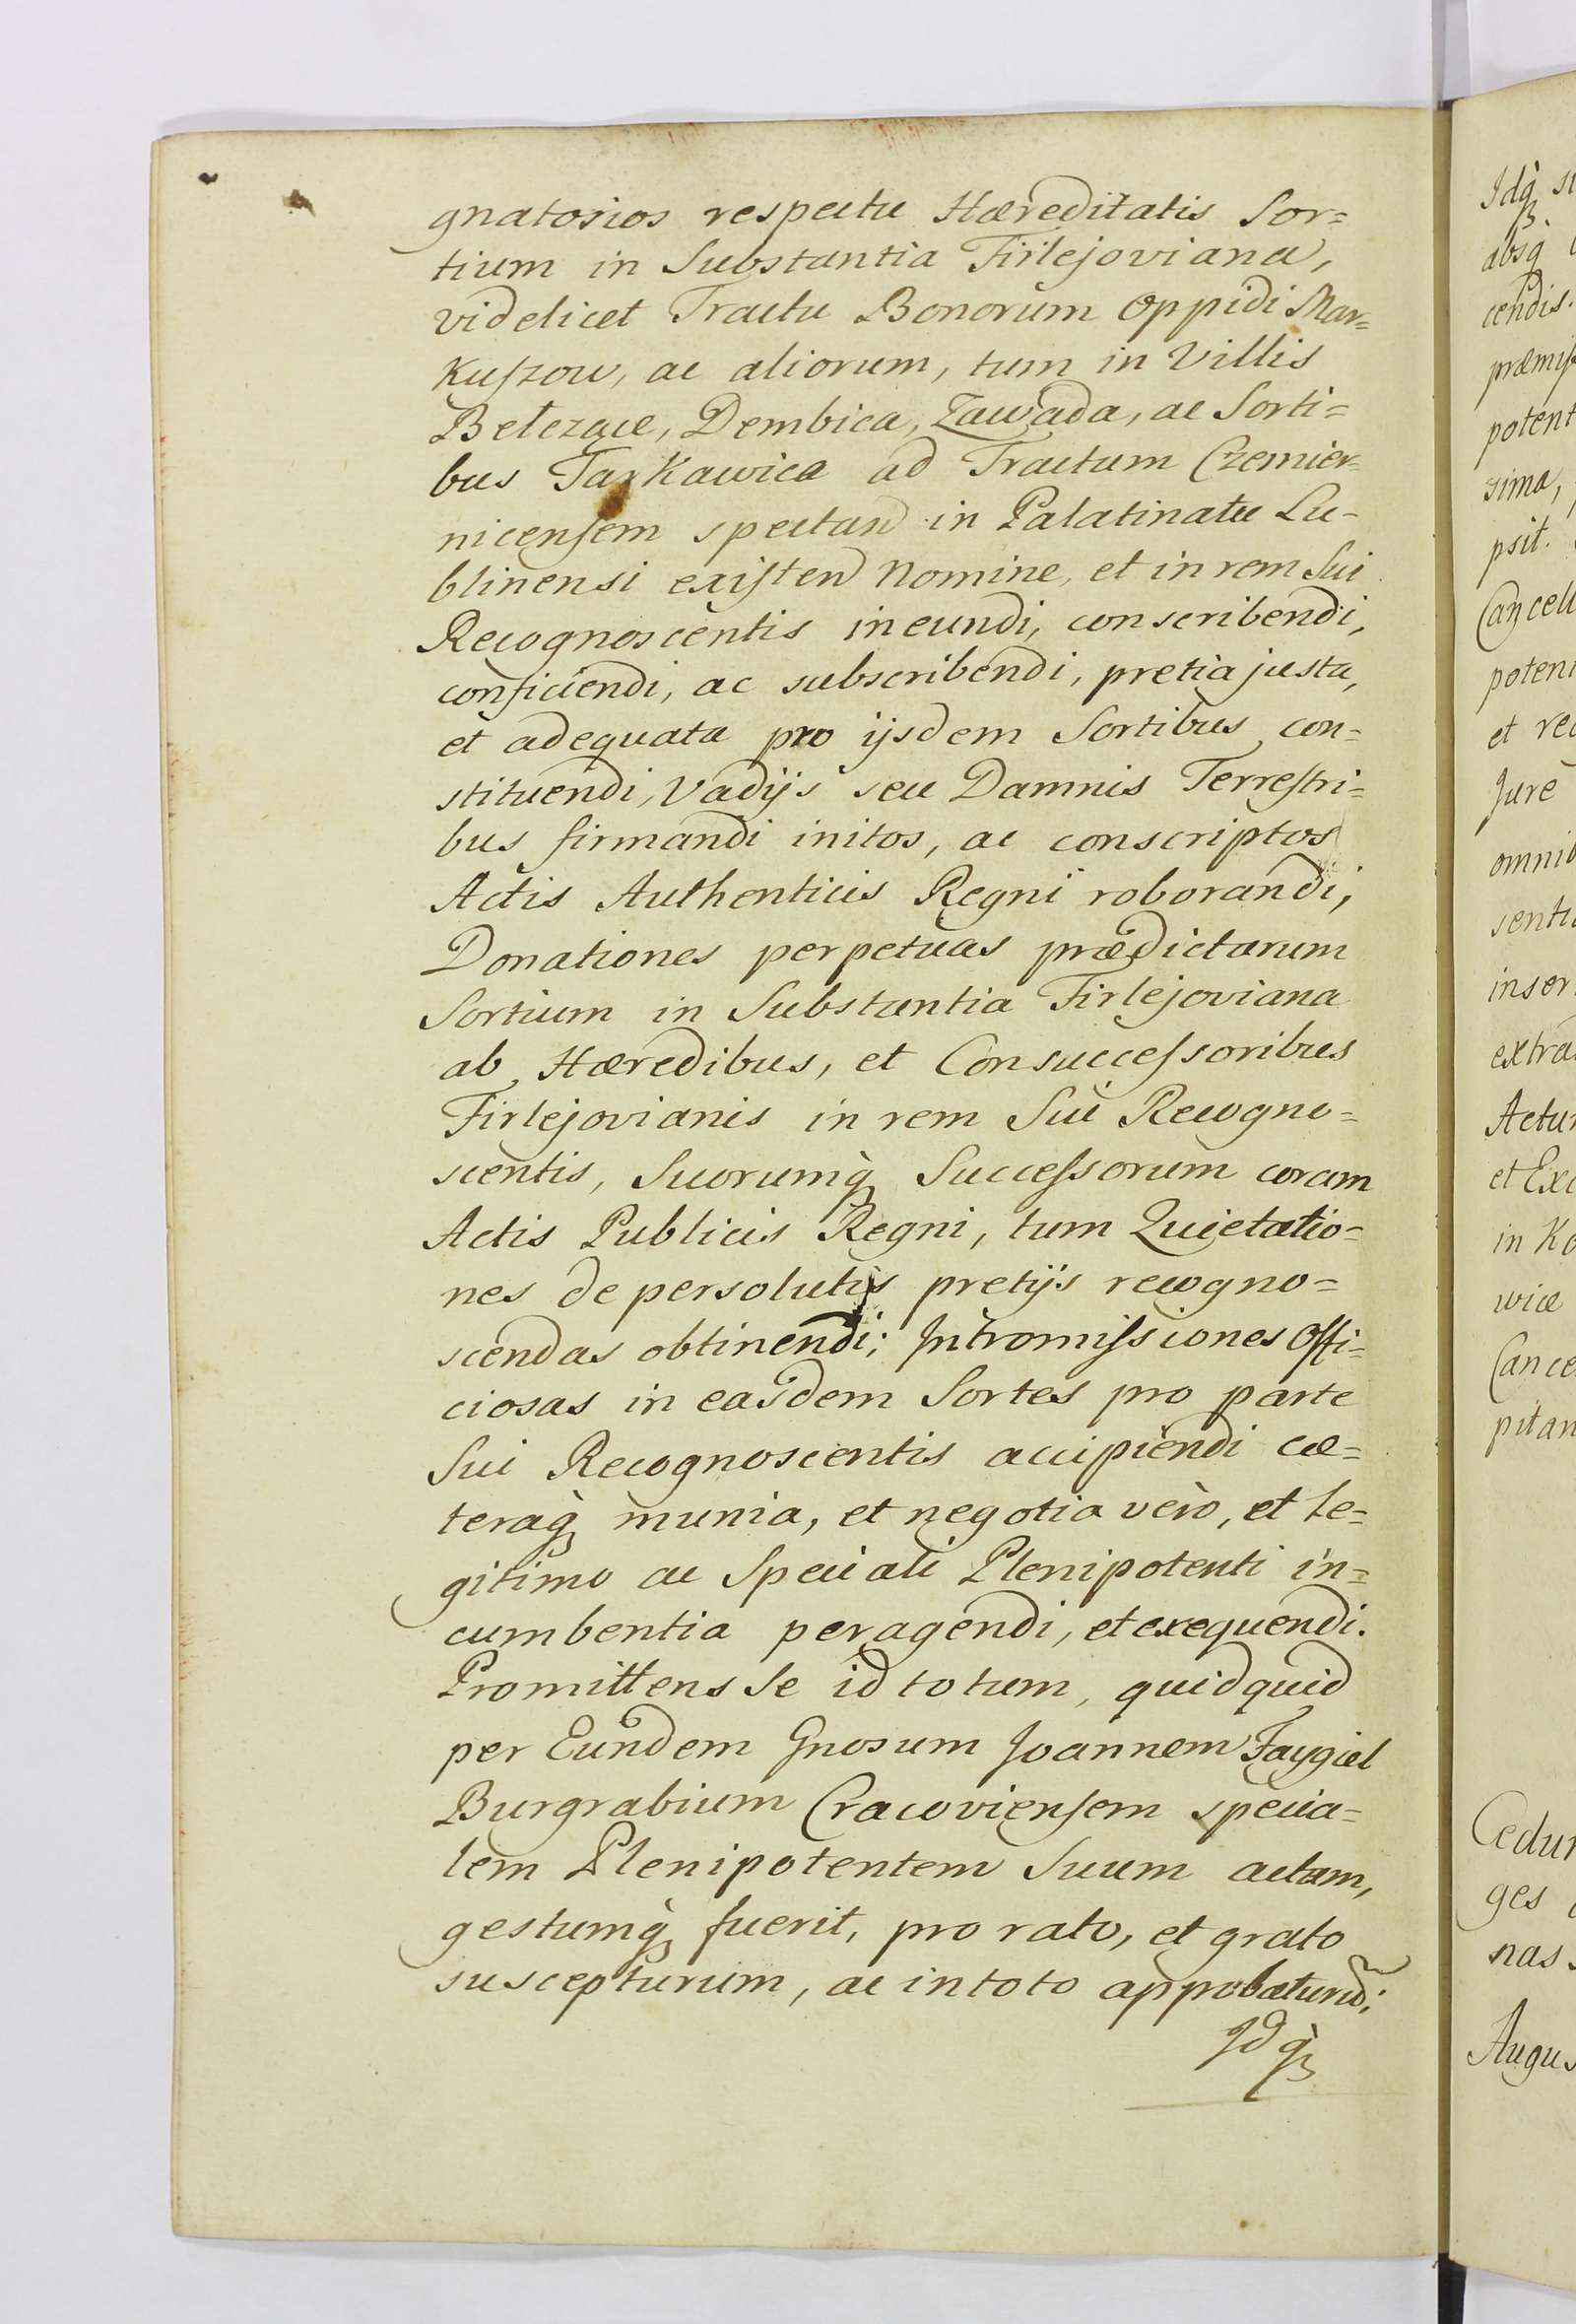 gnatorios respectu Hæreditatis Sor=
tium in Substantia Firlejoviana,
videlicet Tractu Bonorum Oppidi Mar=
kuſzow, ac aliorum, tum in Villis
Bełczące, Dembica, Zawada, ac Sorti=
bus Tarkawica ad Tractum Czemier=
nicenſem spectan in Palatinatu Lu-
blinensi exiſten Nomine, et in rem Sui
Recognoscentis ineundi, conscribendi,
conficiendi, ac subscribendi, pretia justa,
et adequata pro ijsdem Sortibus con=
stituendi, Vadijs seu Damnis Terreſtri=
bus firmandi initos, ac conscriptos
Actis Authenticis Regni roborandi,
Donationes perpetuas prædictarum
Sortium in Substantia Firlejoviana
ab Hæredibus, et Consucceſsoribus
Firlejovianis in rem Sui Recogno=
scentis, Suorumq́ Succeſsorum coram
Actis Publicis Regni, tum Quietatio=
nes de persolutis pretijs recogno=
scendas obtinendi; Intromiſsiones Offi=
ciosas in easdem Sortes pro parte
Sui Recognoscentis accipiendi cæ=
teraq́ munia, et negotia vero, et le=
gitimo ac Speciali Plenipotenti in=
cumbentia peragendi, et exequendi.
Promittens Se id totum, quidquid
per Eundem Gnosum Joannem Faygiel
Burgrabium Cracovienſem specia=
lem Plenipotentem Suum actum,
gestumq́ fuerit, pro rato, et grato
suscepturum, ac in toto approbaturũ;
Idq́
Idq́
absq́
cendis.
præmiſ
potent
sima,
psit.
Cancell
poten
et rec
Jure
omnib
senti
inser
extra
Actu
et Ex
in K
wice
Cance
pitan
Cedu
ges
nas
Augus